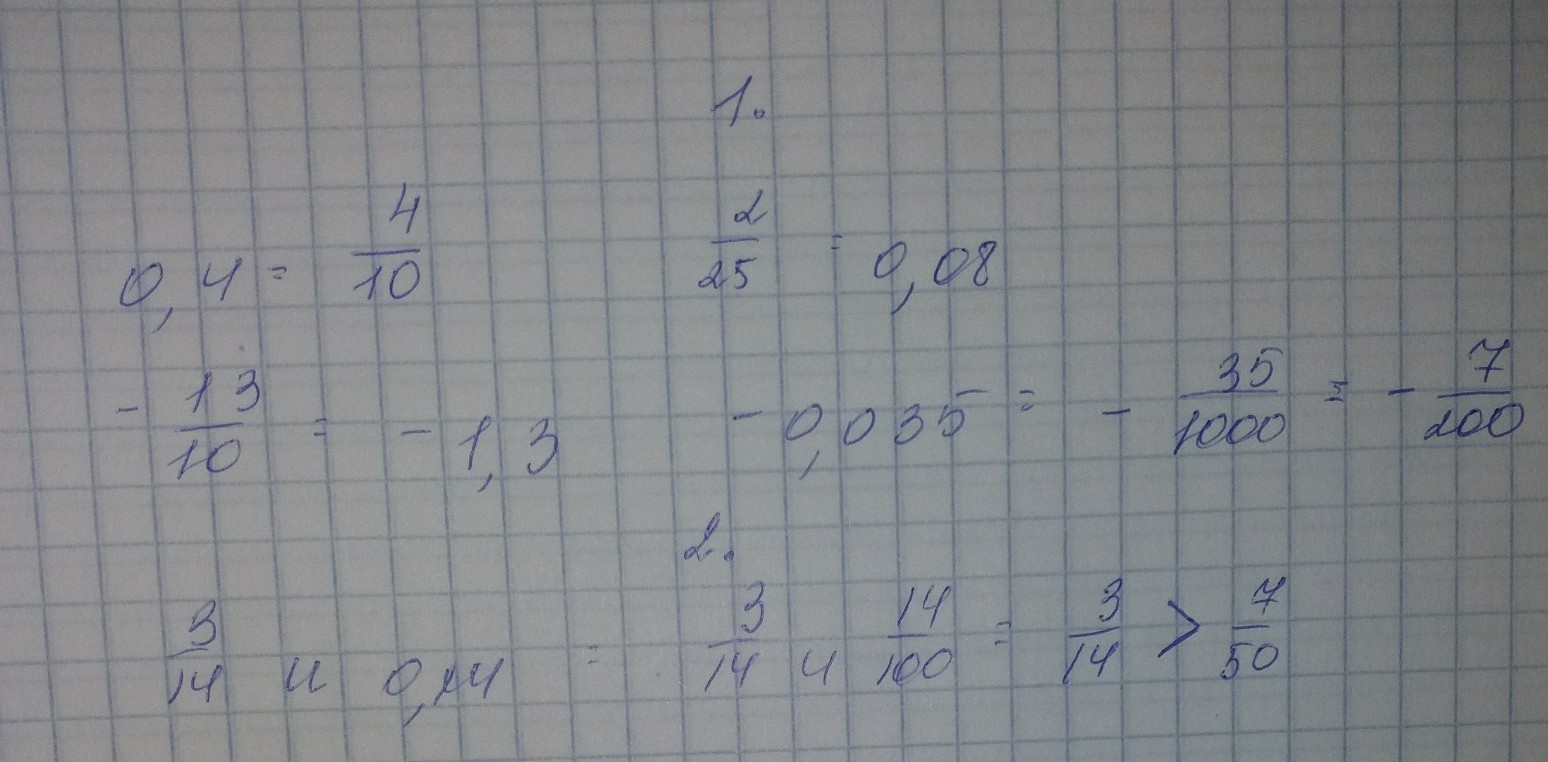 1.
0,4 = 4/10   2/25 = 0,08
- 13/10 = - 1,3   - 0,035 = - 35/1000 = - 7/200
2.
3/14 и 0,14 = 3/14 и 14/100 = 3/14 > 7/50